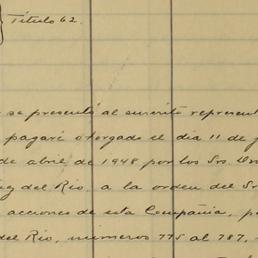 Título 62.
se presentó al suscrito represent
pagaré otorgado el día 11 de
de abril de 1948 por los Srs.
del Río, a la orden del Sr
acciones de esta Compañía, p
del Río, números 775 al 787,